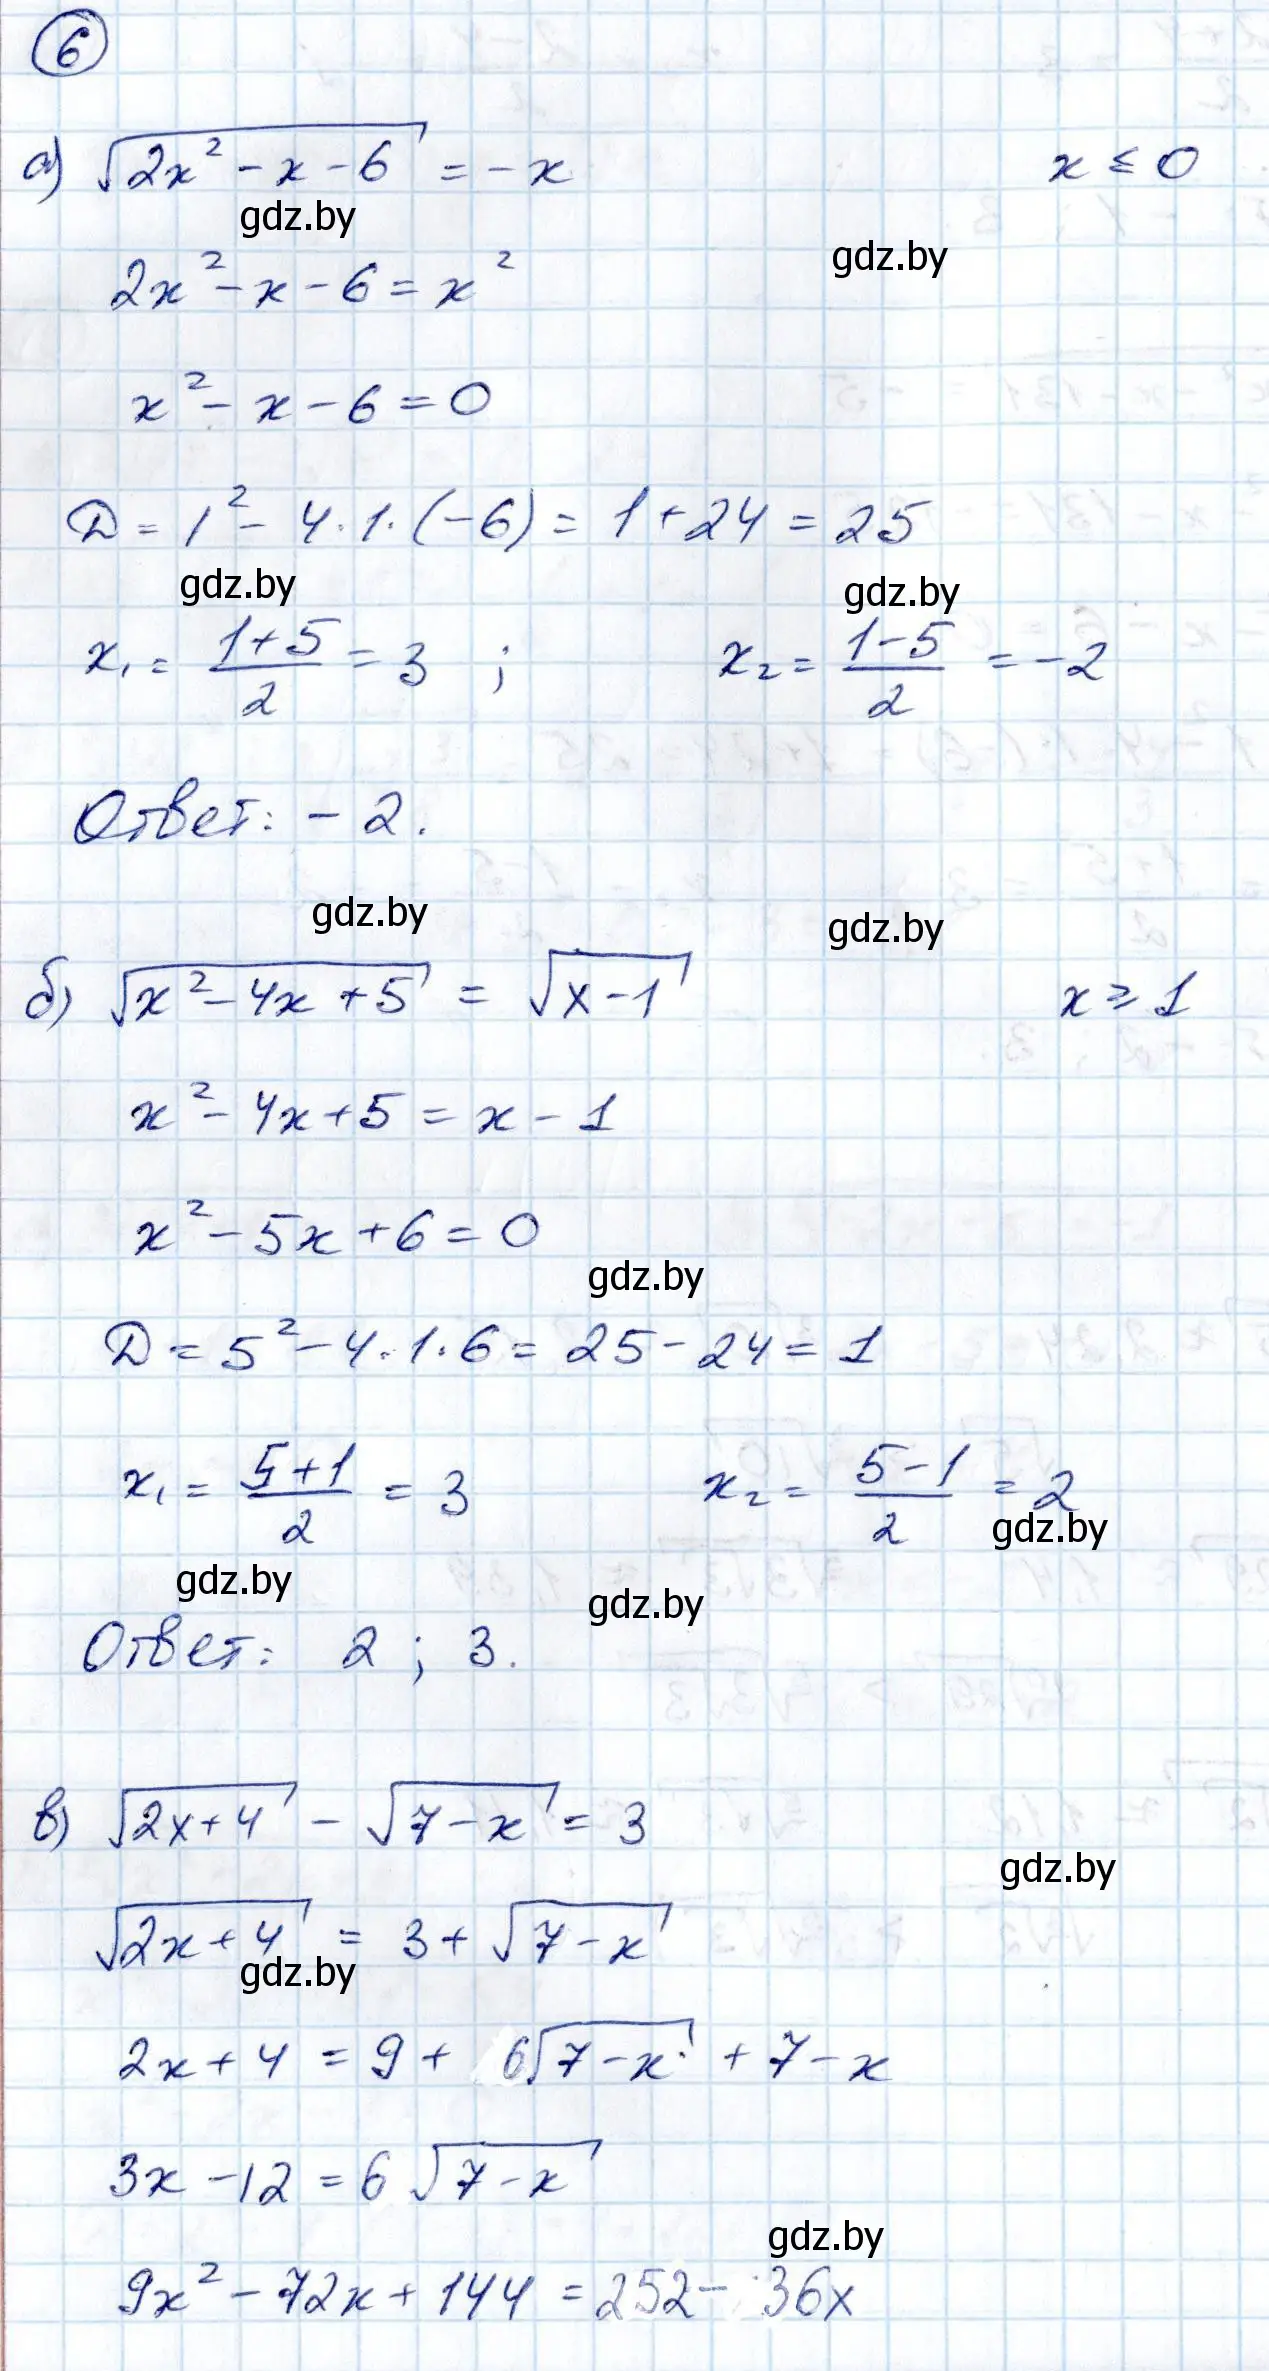 6
а) √(2x² - x - 6) = -x x ≤ 0
gdz.by
gdz.by
2x² - x - 6 = x²
x² - x - 6 = 0
D = 1² - 4·1·(-6) = 1 + 24 = 25
gdz.by gdz.by
x₁ = (1+5)/2 = 3 ; x₂ = (1-5)/2 = -2
Ответ: -2.
gdz.by gdz.by
б) √(x² - 4x + 5) = √(x - 1) x ≥ 1
x² - 4x + 5 = x - 1
x² - 5x + 6 = 0
gdz.by
D = 5² - 4·1·6 = 25 - 24 = 1
x₁ = (5+1)/2 = 3 x₂ = (5-1)/2 = 2
gdz.by
gdz.by gdz.by
Ответ: 2 ; 3.
в) √(2x+4) - √(7-x) = 3
gdz.by
√(2x+4) = 3 + √(7-x)
gdz.by
2x + 4 = 9 + 6√(7-x) + 7 - x
3x - 12 = 6√(7-x)
gdz.by
9x² - 72x + 144 = 252 - 36x